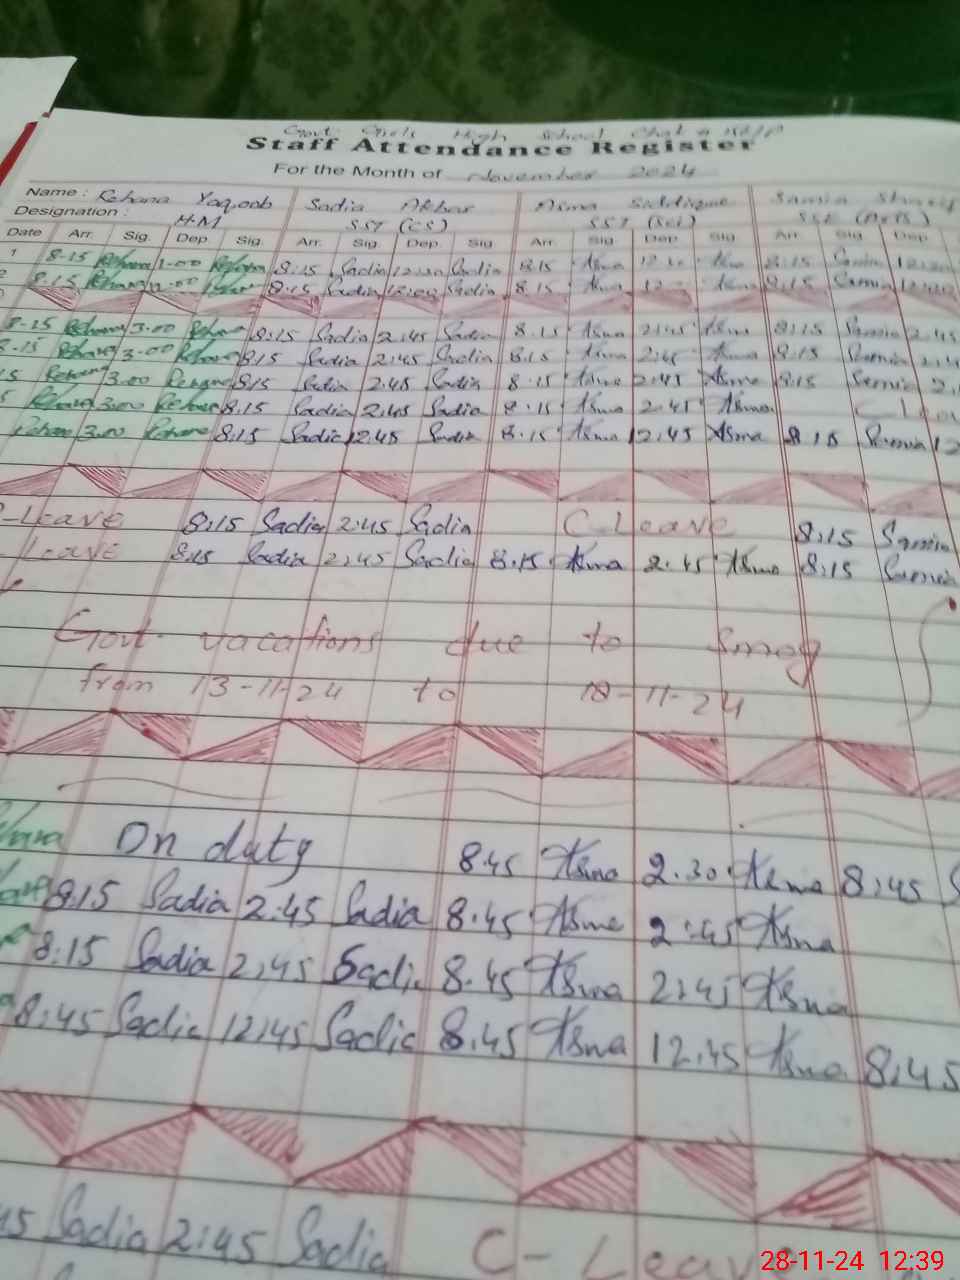 Govt. Girls High School Chak
Staff Attendance Register
For the Month of November 2024
Name : Rehana Yaqoob Sadia Akbar Asma Siddique Samia
Designation : H.M SST (CS) SST (Sci) SSE (Arts)
Date Arr. Sig. Dep Sig. Arr. Sig. Dep. Sig Arr. Sig. Dep. Sig Arr. Sig. Dep.
1 8-15 Rehana 1-00 Rehana 8:15 Sadia Sadia 8.15 Asma 8:15 Samia
2 8.15 Rehana 8:15 Sadia Sadia 8.15 Asma 8:15 Samia
8-15 Rehana 3.00 Rehana 8:15 Sadia 2:45 Sadia 8.15 Asma 2:45 Asma 8:15 Samia 2.45
8-15 Rehana 3-00 Rehana 8:15 Sadia 2:45 Sadia 8.15 Asma 2:45 Asma 8:15 Samia
Rehana 3.00 Rehana 8:15 Sadia 2:45 Sadia 8.15 Asma 2:45 Asma 8:15 Samia
Rehana 3.00 Rehana 8:15 Sadia 2:45 Sadia 8.15 Asma 2.45 Asma
Rehana 3.00 Rehana 8:15 Sadia 12:45 Sadia 8.15 Asma 12.45 Asma 8:15 Samia
-Leave 8:15 Sadia 2:45 Sadia C-Leave 8:15 Samia
Leave 8:15 Sadia 2:45 Sadia 8.15 Asma 2.45 Asma 8:15 Samia
Govt. vacations due to Smog
from 13-11-24 to 18-11-24
On duty 8.45 Asma 2.30 Asma 8:45
8:15 Sadia 2:45 Sadia 8.45 Asma 2:45 Asma
8:15 Sadia 2:45 Sadia 8.45 Asma 2:45 Asma
8:45 Sadia 12:45 Sadia 8.45 Asma 12.45 Asma 8:45
Sadia 2:45 Sadia C-Leave
28-11-24 12:39